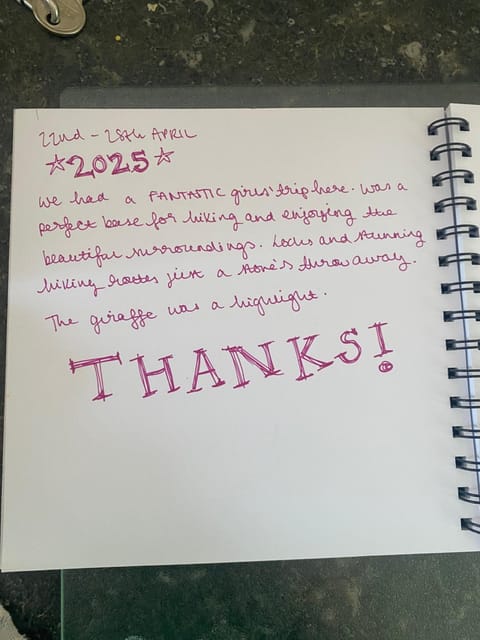 22nd - 28th APRIL
☆2025☆
We had a FANTASTIC girls' trip here. Was a
perfect base for hiking and enjoying the
beautiful surroundings. Lochs and stunning
hiking routes just a stone's throw away.
The giraffe was a highlight.
THANKS!